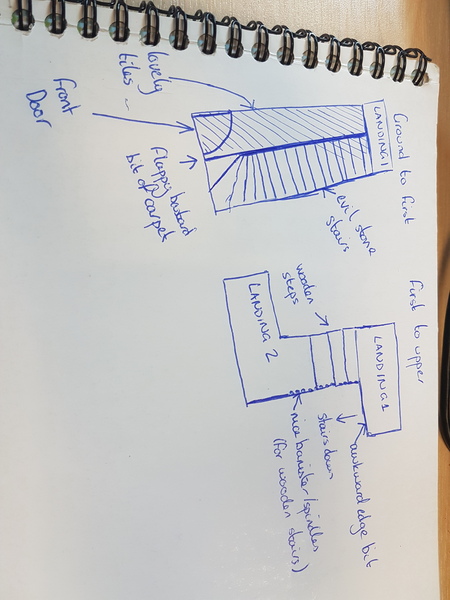 Ground to first
LANDING 1
lovely
tiles
Front
Door
Flappy bastard
bit of carpet
evil stone
stairs
First to upper
LANDING 1
wooden
steps
LANDING 2
awkward edge bit
stairs down
nice banister/spindles
(for wooden stairs)